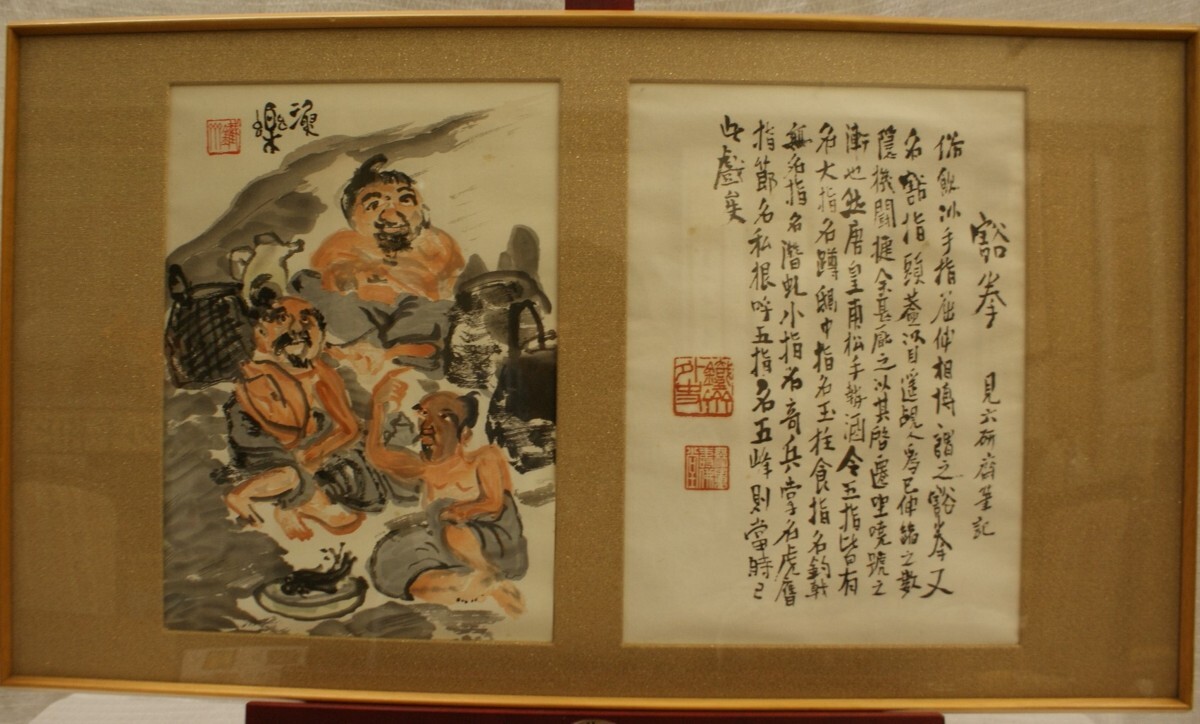 豁拳 見六研齋筆記
俗飲以手指屈伸相博謂之豁拳又
名豁指頭蓋以目遙覘人為己伸縮之數
隱機鬪捷余甚厭之以其啓遷坐嘵號之
漸也然唐皇甫松手勢酒令五指皆有
名大指名蹲鴟中指名玉柱食指名鉤戟
無名指名潛虬小指名奇兵掌名虎膺
指節名私根呼五指名五峰則當時已
此戲矣
漁樂